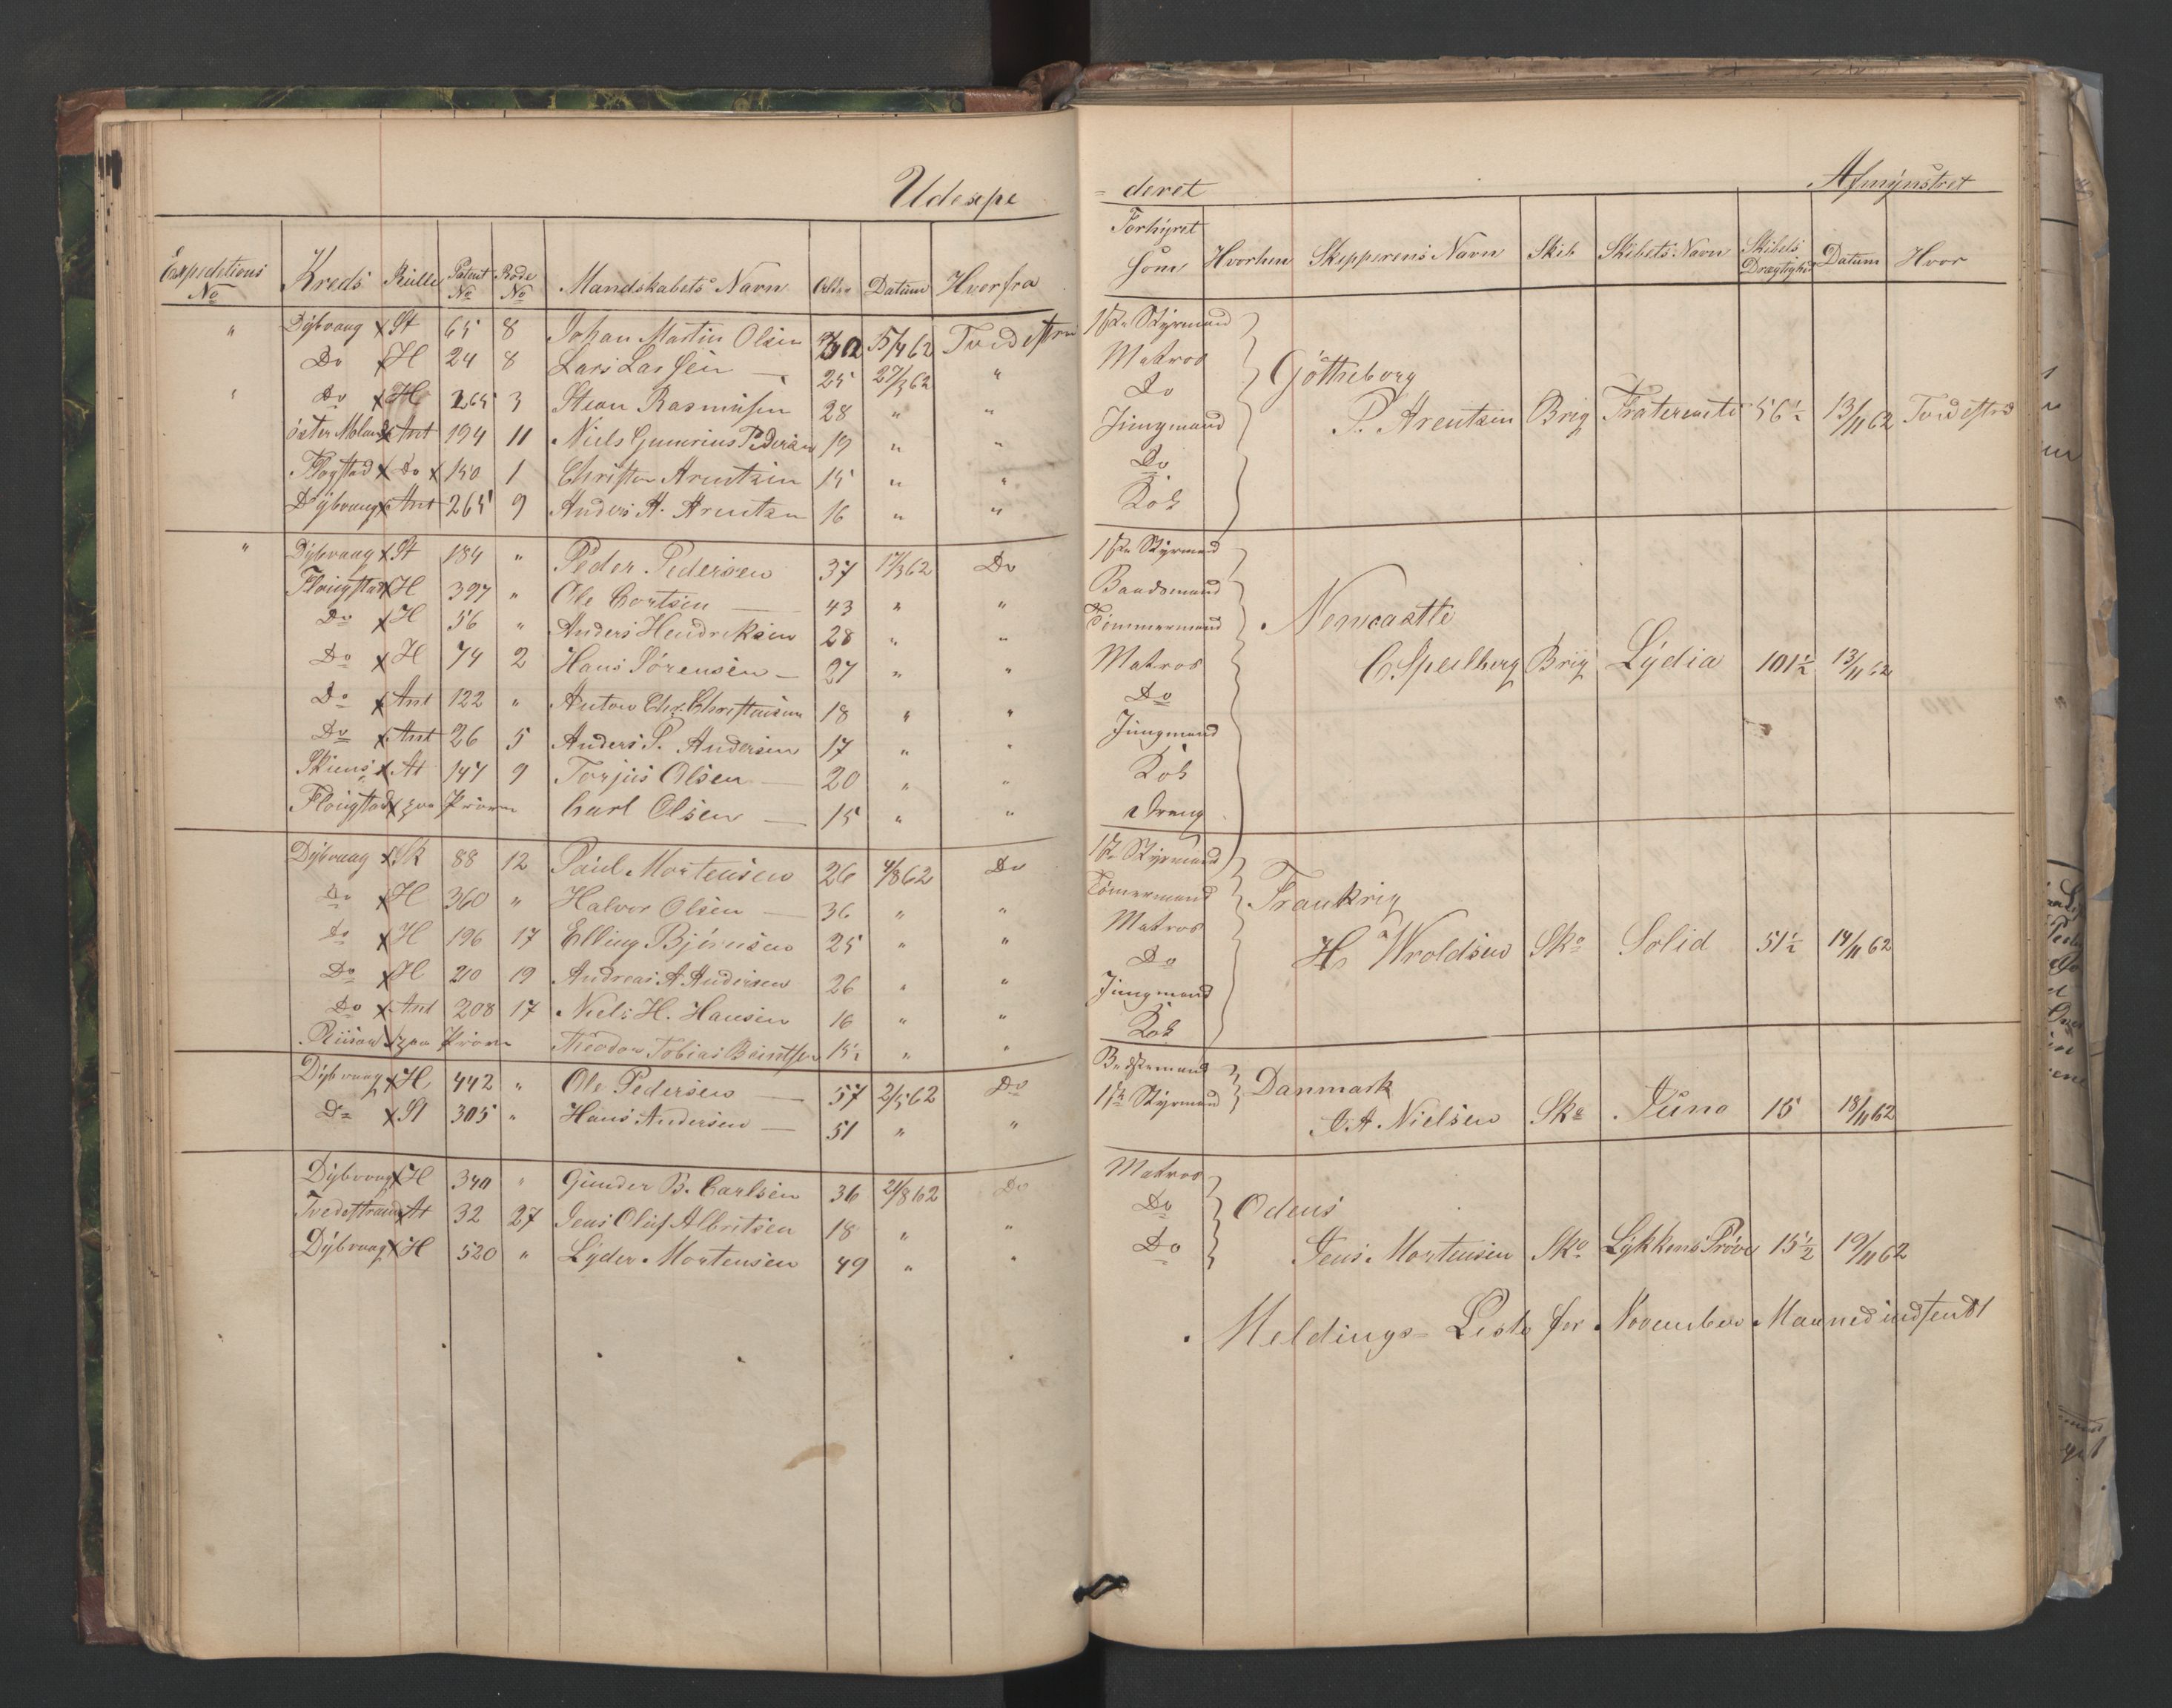 Udexpe
Expeditions No Kreds Rulle Patent No Rode No Mandskabets Navn Alder Datum Hvorfra
" Dybvaag x St 65 8 Johan Martin Olsen 5/4 62 Tvedestrn
Do x H 24 8 Lars Larsen — 25 27/3 62 "
" Do x H 265 3 Steen Rasmusen 28 " "
öster Moland x Ant 194 11 Niels Gunerius Pedersen 19 " "
Flogstad x Do x 150 1 Christen Arentzen 15 " "
Dybvaag x Ant 265 9 Anders A. Arentzen 16 " "
" Dybvaag x St 184 " Peder Pedersen 37 17/3 62 Do
Flougstad x H 397 " Ole Cortsen — 43 " "
Do x H 56 " Anders Hendriksen 28 " "
Do x H 74 2 Hans Sörensen — 27 " "
Do x Ant 122 " Anton Chr. Christensen 18 " "
Do x Ant 26 5 Anders P. Andersen 17 " "
Skiens x At 147 9 Torjus Olsen — 20 " "
Flougstad x paa Pröven Carl Olsen — 15 " "
Dybvaag x Sk 88 12 Paul Mortensen 26 4/8 62 Do
Do x H 360 " Halvor Olsen — 36 " "
Do x H 196 17 Elling Björnsen 25 " "
Do x H 210 19 Andreas A Andersen 26 " "
Do x Ant 208 17 Niels H. Hansen 16 " "
Riisöer x paa Pröven Theodor Tobias Berntsen 15½ " "
Dybvaag x H 442 " Ole Pedersen — 57 2/5 62 Do
Do x St 305 " Hans Andersen — 51 " "
Dybvaag x H 340 " Gunder B. Carlsen 36 21/8 62 Do
Tvedestrand x At 32 27 Jens Oluf Albritsen 18 " "
Dybvaag x H 520 " Lyder Mortensen 49 " "
= deret Afmynstret
Forhyret
Som Hvorhen Skipperens Navn Skib Skibets Navn Skibets Drægtighed Datum Hvor
1ste Styrmand
Matros
Do Götheborg
Jungmand P. Arentsen Brig Fraternite 56½ 13/11 62 Tvedestrd
Do
Kok
1ste Styrmand
Baadsmand
Tömmermand Newcastle
Matros C Speilberg Brig Lydia 101½ 13/11 62
Do
Jungmand
Kok
Dreng
1ste Styrmand
Tömermand Frankrig
Matros
Do H. Wroldsen Sko Solid 51½ 14/11 62
Jungmand
Kok
Bedstemand Danmark
1ste Styrmand A. A. Nielsen Sko Juno 15 18/11 62
Matros
Do Odens
Do Jens Mortensen Sko Lykkens Pröve 15½ 19/11 62
Meldings= Liste for November Maaned indsendt